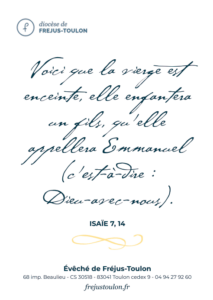 diocèse de
FREJUS-TOULON
Voici que la vierge est
enceinte, elle enfantera
un fils, qu'elle
appellera Emmanuel
(c'est-à-dire :
Dieu-avec-nous).
ISAÏE 7, 14
Évêché de Fréjus-Toulon
68 imp. Beaulieu - CS 30518 - 83041 Toulon cedex 9 - 04 94 27 92 60
frejustoulon.fr